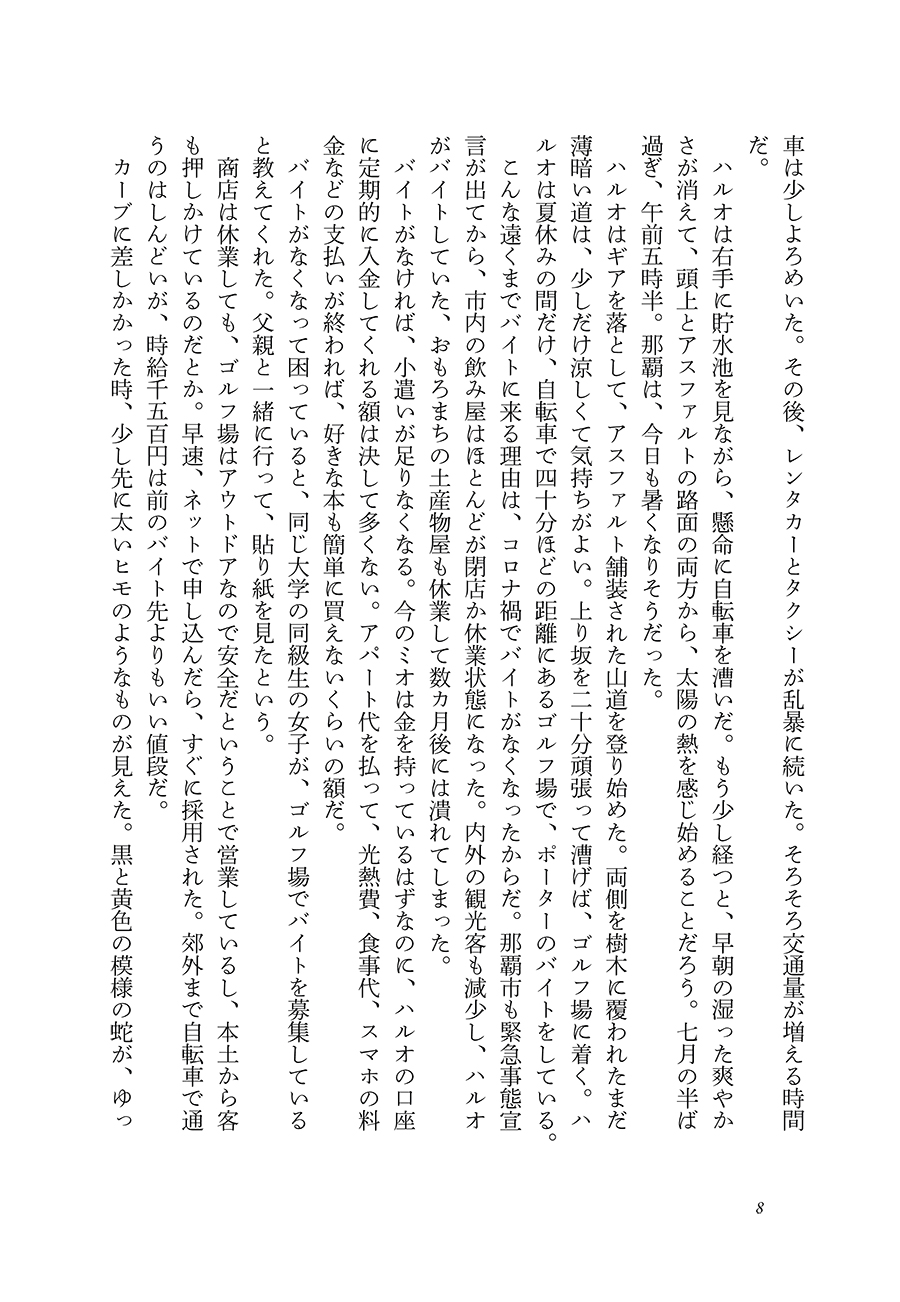 車は少しよろめいた。その後、レンタカーとタクシーが乱暴に続いた。そろそろ交通量が増える時間
だ。
ハルオは右手に貯水池を見ながら、懸命に自転車を漕いだ。もう少し経つと、早朝の湿った爽やか
さが消えて、頭上とアスファルトの路面の両方から、太陽の熱を感じ始めることだろう。七月の半ば
過ぎ、午前五時半。那覇は、今日も暑くなりそうだった。
ハルオはギアを落として、アスファルト舗装された山道を登り始めた。両側を樹木に覆われたまだ
薄暗い道は、少しだけ涼しくて気持ちがよい。上り坂を二十分頑張って漕げば、ゴルフ場に着く。ハ
ルオは夏休みの間だけ、自転車で四十分ほどの距離にあるゴルフ場で、ポーターのバイトをしている。
こんな遠くまでバイトに来る理由は、コロナ禍でバイトがなくなったからだ。那覇市も緊急事態宣
言が出てから、市内の飲み屋はほとんどが閉店か休業状態になった。内外の観光客も減少し、ハルオ
がバイトしていた、おもろまちの土産物屋も休業して数カ月後には潰れてしまった。
バイトがなければ、小遣いが足りなくなる。今のミオは金を持っているはずなのに、ハルオの口座
に定期的に入金してくれる額は決して多くない。アパート代を払って、光熱費、食事代、スマホの料
金などの支払いが終われば、好きな本も簡単に買えないくらいの額だ。
バイトがなくなって困っていると、同じ大学の同級生の女子が、ゴルフ場でバイトを募集している
と教えてくれた。父親と一緒に行って、貼り紙を見たという。
商店は休業しても、ゴルフ場はアウトドアなので安全だということで営業しているし、本土から客
も押しかけているのだとか。早速、ネットで申し込んだら、すぐに採用された。郊外まで自転車で通
うのはしんどいが、時給千五百円は前のバイト先よりもいい値段だ。
カーブに差しかかった時、少し先に太いヒモのようなものが見えた。黒と黄色の模様の蛇が、ゆっ
8